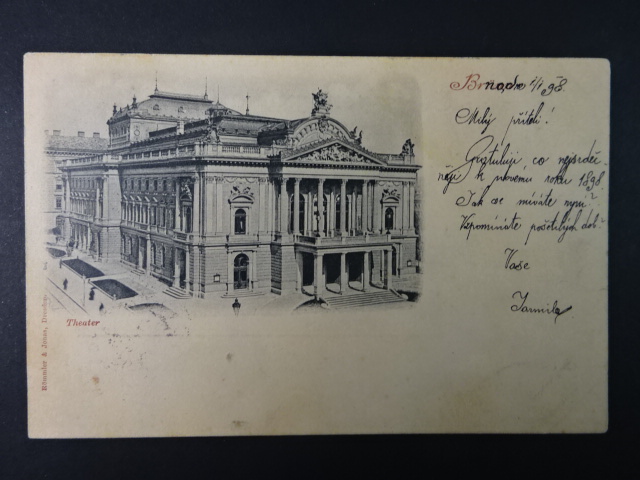 Brno 1/1 98.
Milý příteli!
Gratuluji, co nejsrdeč-
něji k novému roku 1898.
Jak se míváte nyní?
Vzpomínáte pošetilých dob?
Vaše
Jarmila
Theater
Römmler & Jonas, Dresden.